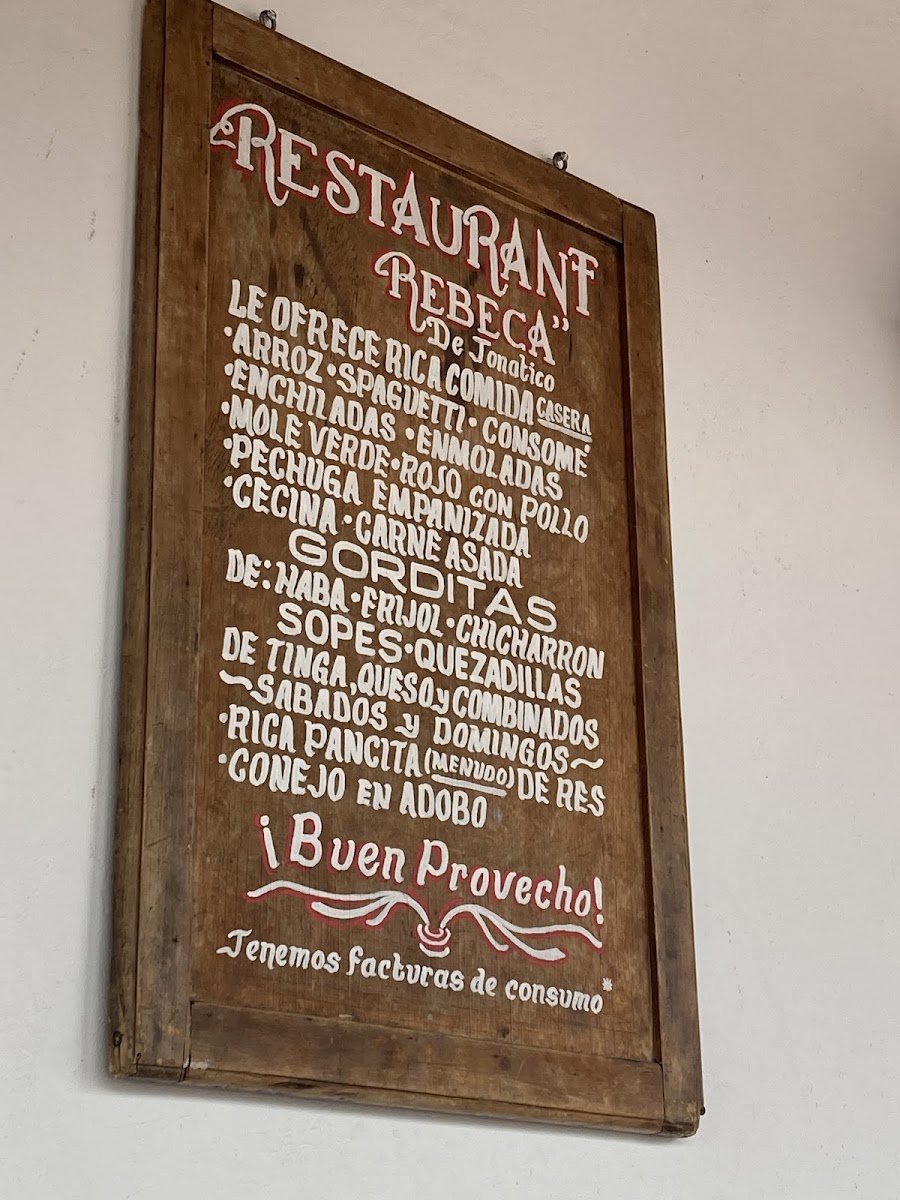 RESTAURANT
REBECA"
De Jonatico
LE OFRECE RICA COMIDA CASERA
·ARROZ·SPAGUETTI·CONSOMÉ
·ENCHILADAS·ENMOLADAS
·MOLE VERDE·ROJO CON POLLO
·PECHUGA EMPANIZADA
·CECINA·CARNE ASADA
GORDITAS
DE: HABA·FRIJOL·CHICHARRON
SOPES·QUEZADILLAS
DE TINGA, QUESO y COMBINADOS
~SABADOS y DOMINGOS~
·RICA PANCITA (MENUDO) DE RES
·CONEJO EN ADOBO
¡Buen Provecho!
Tenemos facturas de consumo*